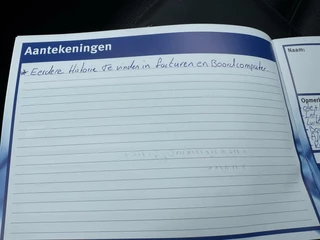 Aantekeningen
* Eerdere Historie Te vinden in facturen en Boordcomputer
Naam:
Opmerk